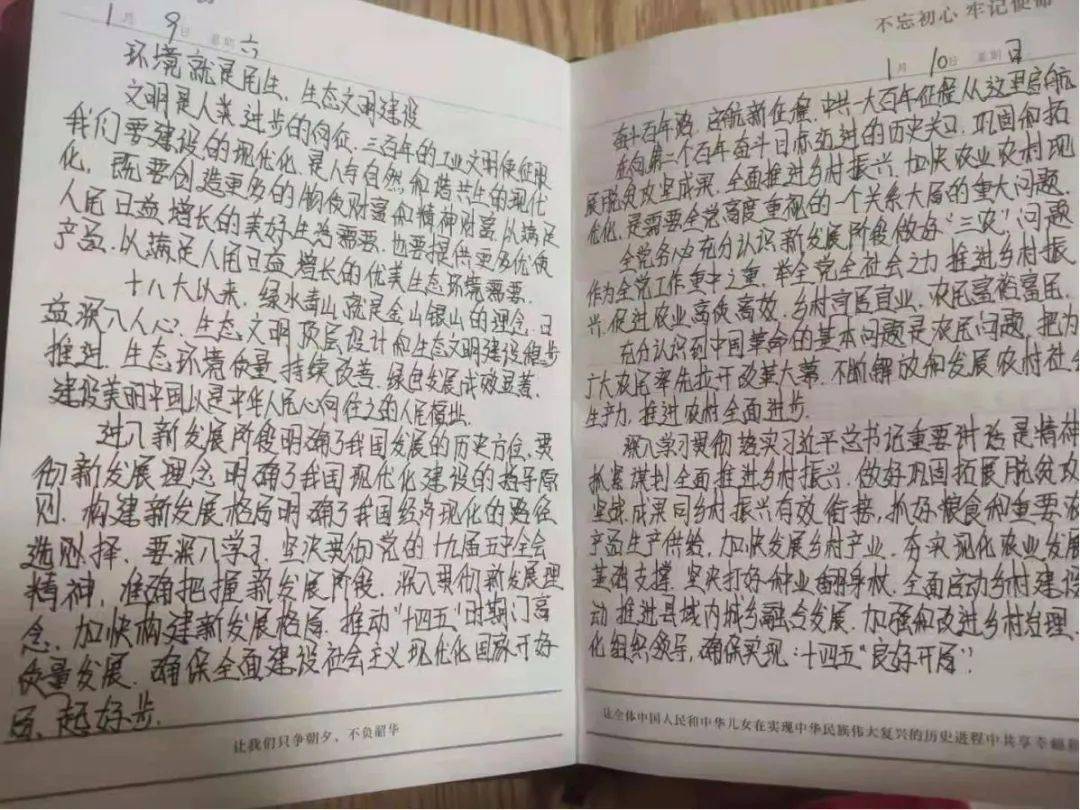 1月9日 星期六
环境就是民生、生态文明建设
文明是人类进步的向征、三百年的工业文明使征服
我们要建设的现代化、是人与自然和谐共生的现代
化、既要创造更多的物质财富和精神财富以满足
人民日益增长的美好生活需要、也要提供更多优质
产品、以满足人民日益增长的优美生态环境需要、
十八大以来、绿水青山就是金山银山的理念、日
益深入人心、生态文明顶层设计和生态文明建设稳步
推进、生态环境质量持续改善、绿色发展成效显著、
建设美丽中国以是中华人民心向往之的人民福业、
进入新发展阶段明确了我国发展的历史方位、贯
彻新发展理念明确了我国现代化建设的指导原
则、构建新发展格局明确了我国经济现化的路径
选择、要深入学习、坚决贯彻党的十九届五中全会
精神、准确把握新发展阶段、深入贯彻新发展理
念、加快构建新发展格局、推动"十四五"时期门高
质量发展、确保全面建设社会主义现代化国家开好
局、起好步.
让我们只争朝夕、不负韶华
不忘初心 牢记使命
1月10日 星期日
奋斗百年路、启航新征程、中共一大百年征程从这里启航
在向第二个百年奋斗目标迈进的历史关口、巩固和拓
展脱贫攻坚成果、全面推进乡村振兴、加快农业农村现
代化、是需要全党高度重视的一个关系大局的重大问题、
全党务必充分认识新发展阶段做好"三农"问题
作为全党工作重中之重、举全党全社会之力推进乡村振
兴、促进农业高质高效、乡村宜居宜业、农民富裕富民、
充分认识到中国革命的基本问题是农民问题、把为
广大农民率先拉开改革大幕、不断解放和发展农村社会
生产力、推进农村全面进步.
深入学习贯彻落实习近平总书记重要讲话是精神
抓紧谋划全面推进乡村振兴、做好巩固拓展脱贫攻
坚成果同乡村振兴有效衔接、抓好粮食和重要农
产品生产供给、加快发展乡村产业、夯实现化农业发展
基础支撑、坚决打好种业翻身杖、全面启动乡村建设
动推进县域内城乡融合发展、加强和改进乡村治理、
化组织领导、确保实现"十四五"良好开局"
让全体中国人民和中华儿女在实现中华民族伟大复兴的历史进程中共享幸福